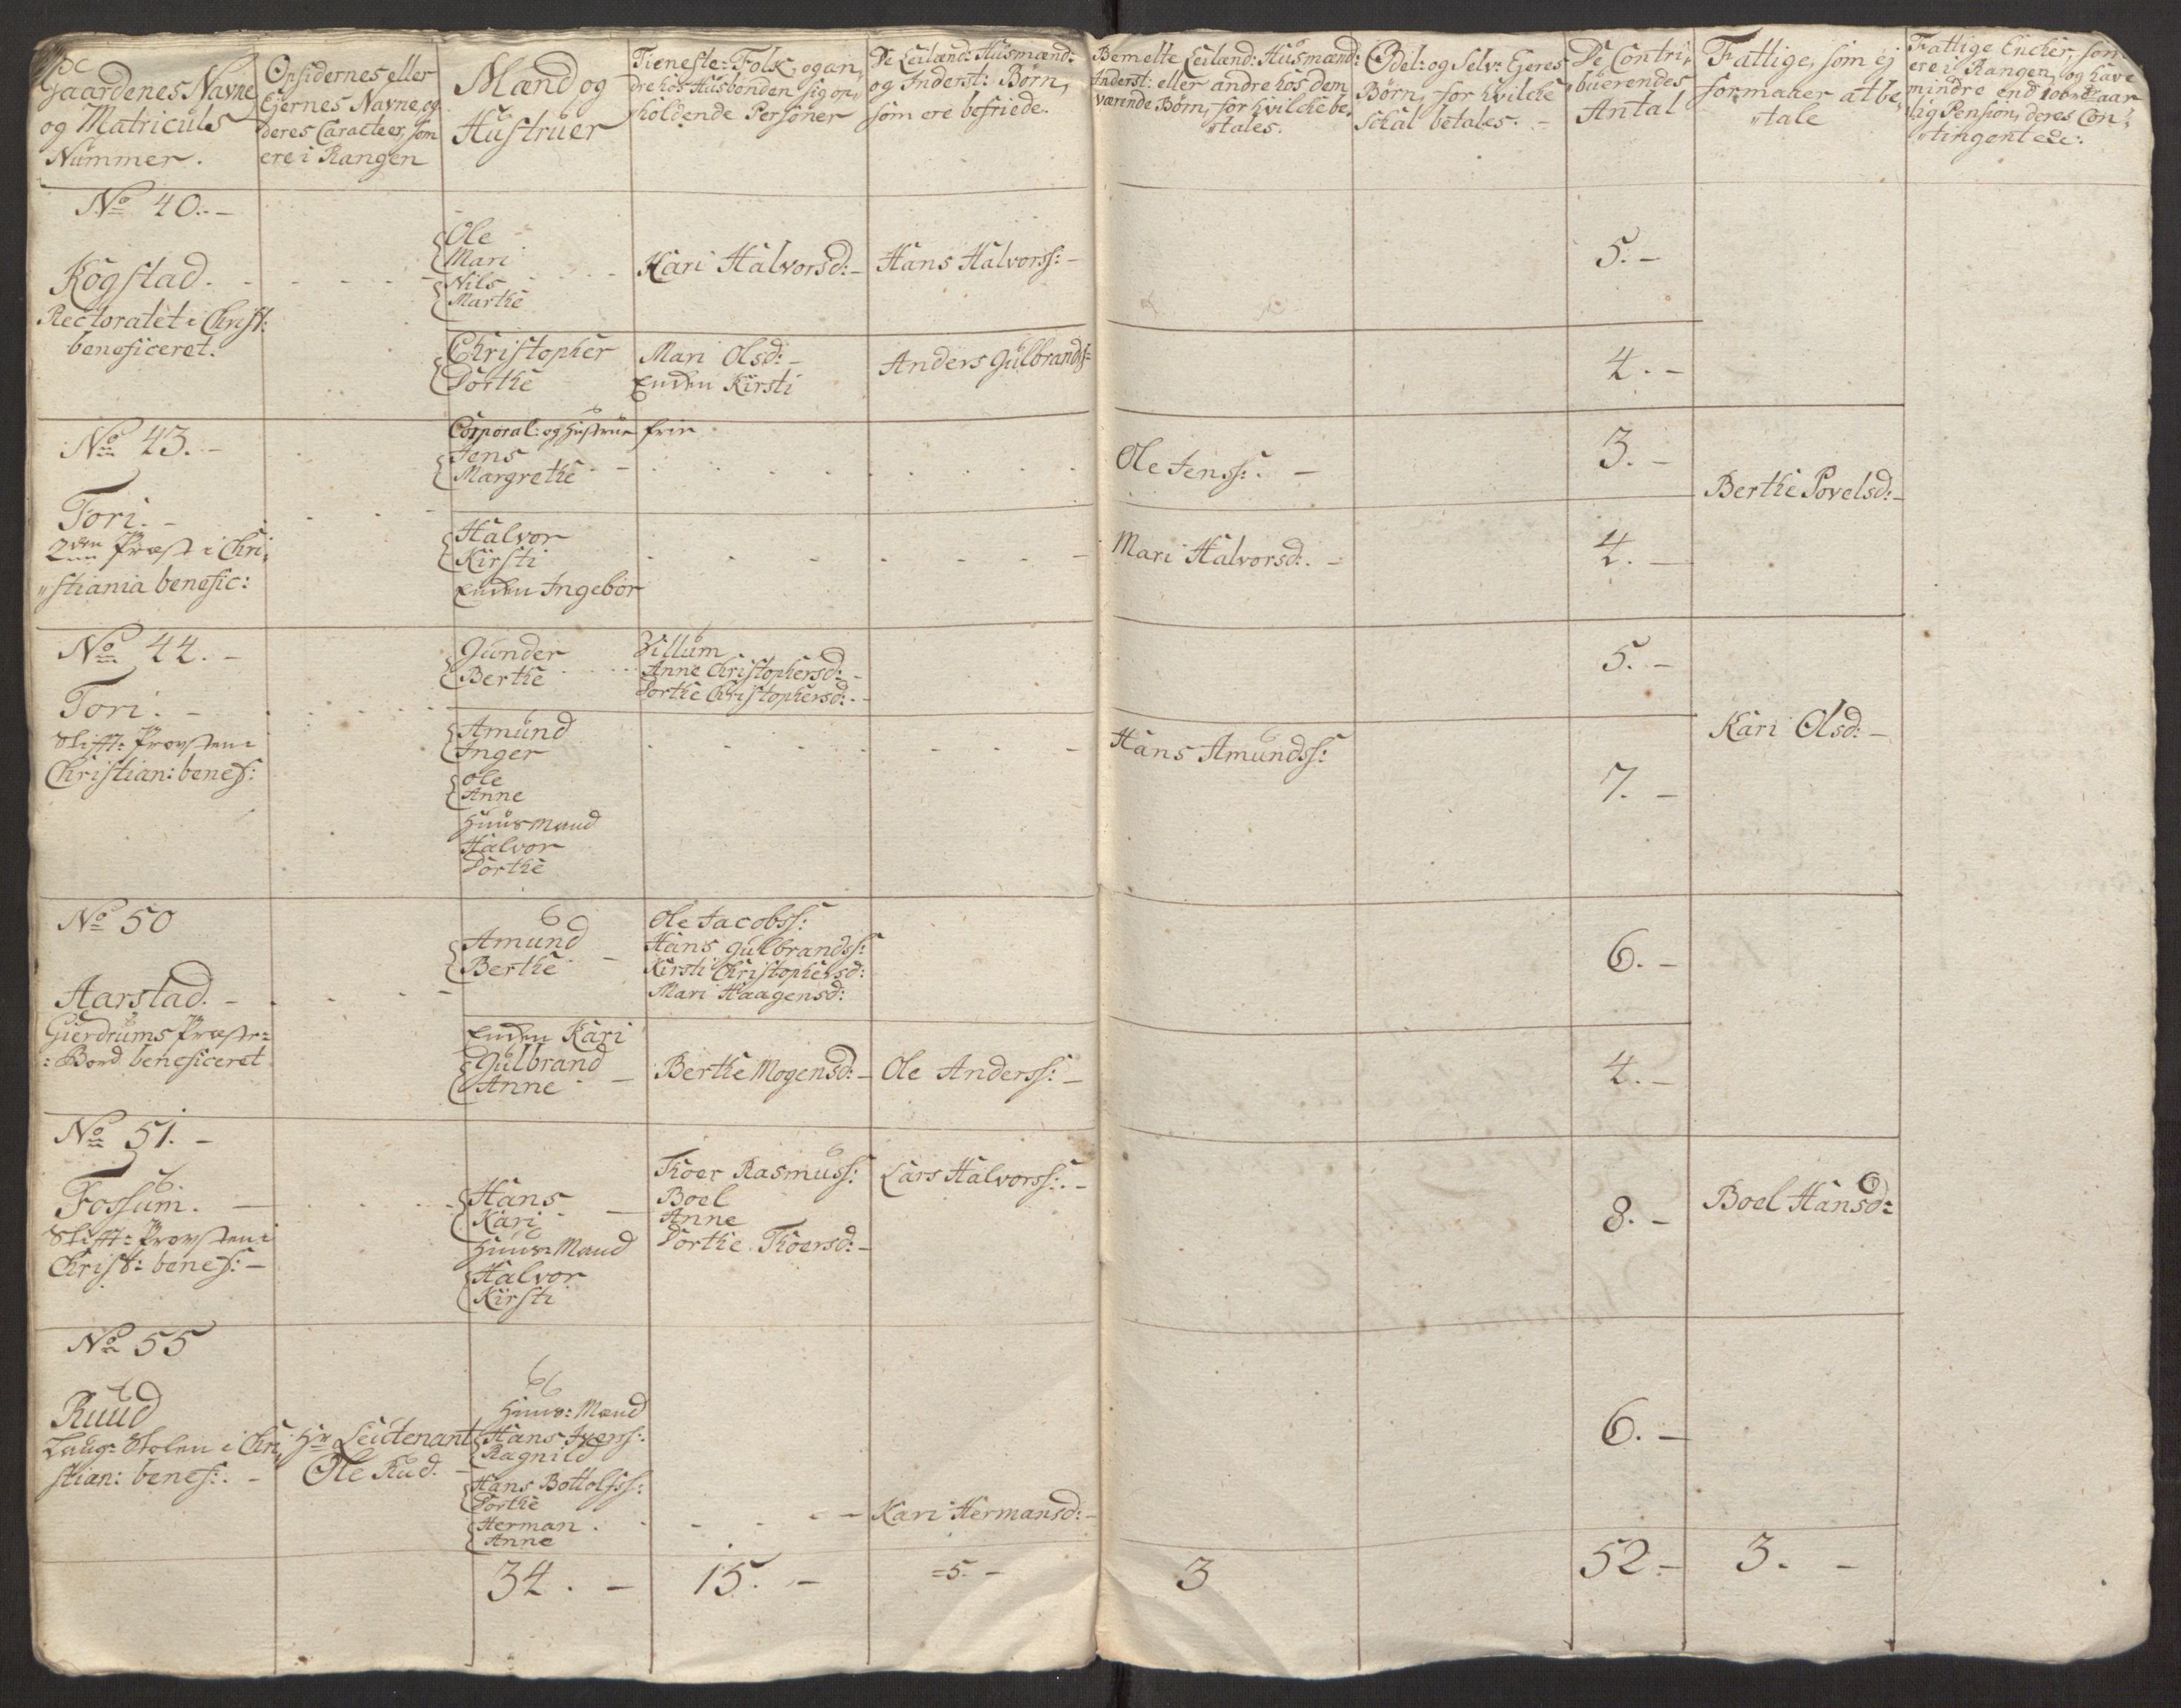 De
Gaardenes Navne
og Matriculs
Nummer.
Opsidernes eller
Ejernes Navne og
deres Caracteer, som
ere i Rangen
Mænd og
Hustruer
Tieneste-Folk, og an,
dre hos Husbonden sig op,
holdende Personer
De Leilænd: Husmænd:
og Inderst: Børn,
som ere befriede.
Bemelte Leilænd: Husmænd:
Inderst: eller andre hos dem
værende Børn, for hvilche be,
"tales.
Odel: og Selv: Ejeres
Børn, for hvilche
Skal betales. -
De Contri,
buerendes
Antal
Fattige, som ej
formaaer at be,
"tale
Fattige Encker, som
ere i Rangen, og have
mindre end 100 rdr aar
lig Pension, deres Con,
"tingent etc:
No 40. -
Kogstad.
Rectoratet i Christ:
beneficeret.
Ole
Mari
Nils
Marthe
Kari Halvorsd: -
Hans Halvorss: -
5. -
Christopher
Dorthe
Mari Olsd: -
Enken Kirsti
Anders Gulbrandss:
4. -
No 43. -
Tori. -
2den Præst i Chri,
"stiania benefic:
Corporal: og Hustrue frie
Jens
Margrethe
Ole Jenss: -
3. -
Berthe Povelsd: -
Halvor
Kirsti
Enken Ingebor
Mari Halvorsd: -
4. -
No 44. -
Tori. -
Stifft: Provsten i
Christian: benef:
Gunder
Berthe
Villum
Anne Christophersd: -
Dorthe Christophersd: -
5. -
Kari Olsd: -
Amund
Inger
Ole
Anne
Huusmand
Halvor
Dorthe
Hans Amundss:
7. -
No 50
Aarstad. -
Gierdrums Præste-
:Bord beneficeret
Amund
Berthe
Ole Jacobss:
Hans Gulbrandss:
Kirsti Christophersd:
Mari Haagensd:
6. -
Enken Kari
Gulbrand
Anne
Berthe Mogensd: -
Ole Anderss: -
4. -
No 51. -
Fossum. -
Stifft: Provsten i
Christ: benef: -
Hans
Kari
Huus: Mand
Halvor
Kirsti
Thoer Rasmuss:
Boel
Anne
Dorthe Thoersd: -
Lars Halvorss: -
8. -
Boel Hansd:
No 55
Ruud
Laug: Stolen i Chri,
stian: benef: -
Hr Leutenant
Ole Rud.
Huus: Mænd
Hans Iverss:
Ragnild
Hans Bottolfss:
Dorthe
Herman
Anne
Kari Hermansd: -
6. -
34. -
15. -
=5. -
3
52. -
3. -